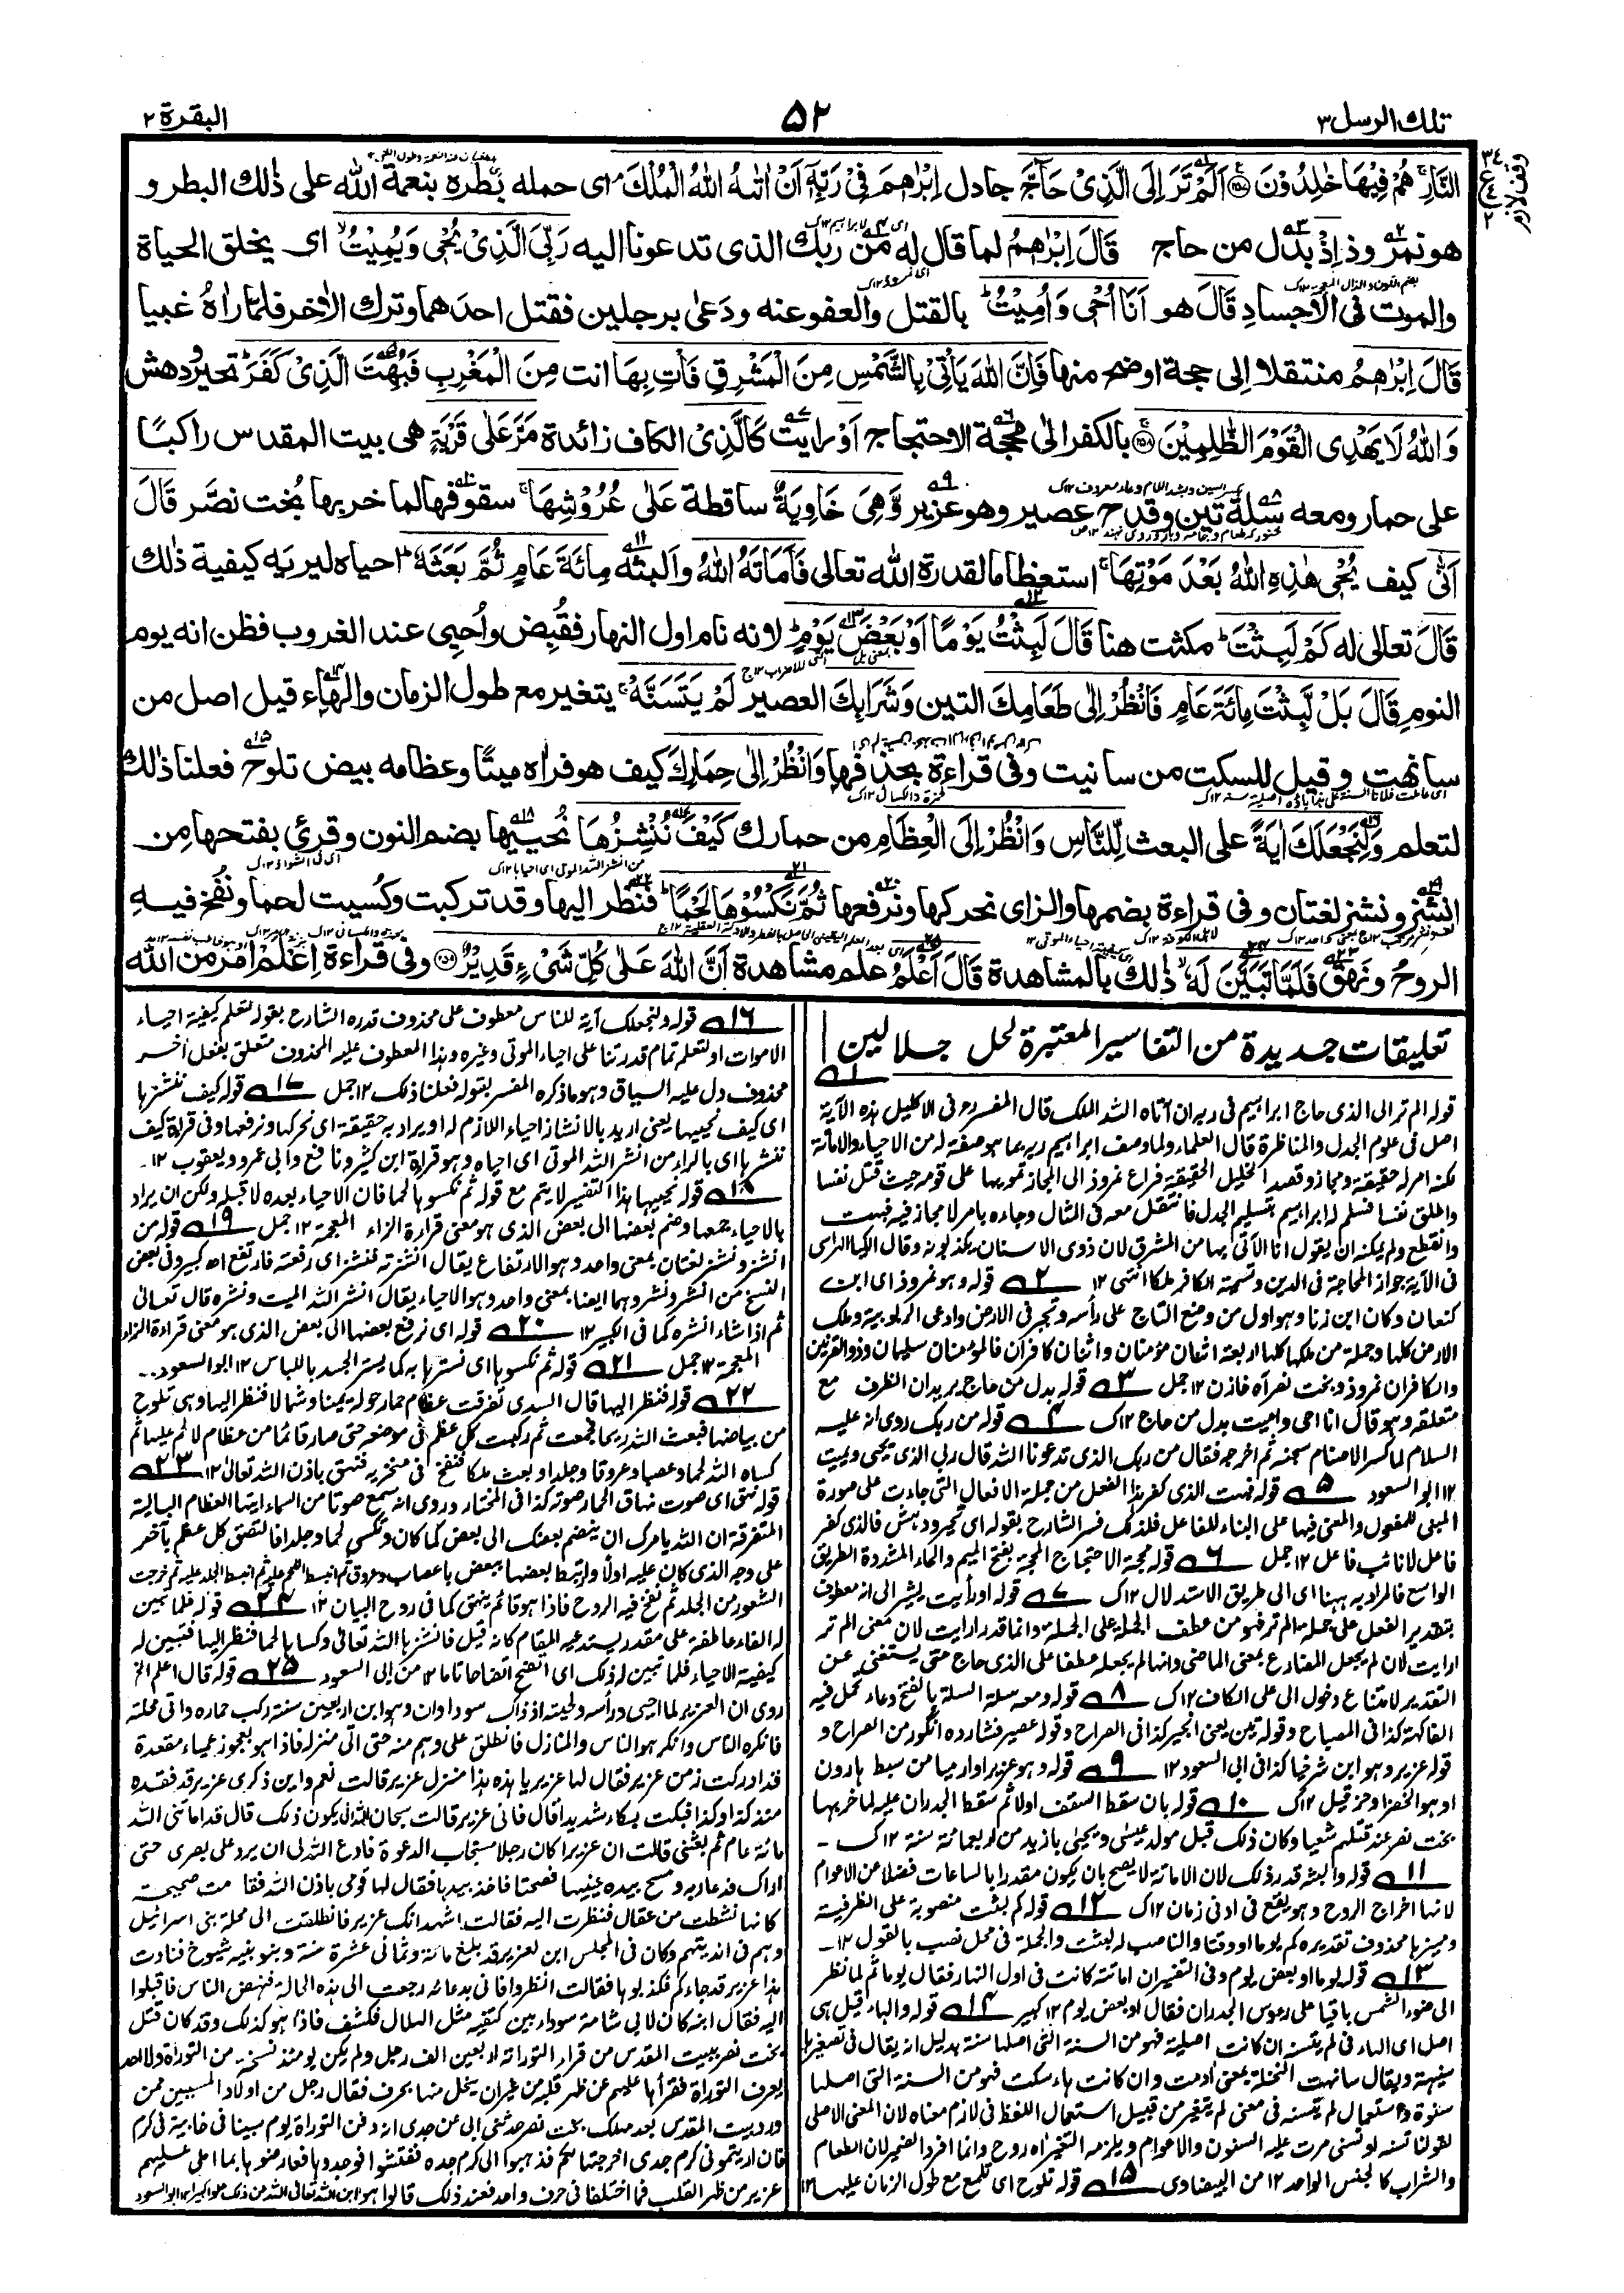 تلك الرسل٣
٥٢
البقرة ٢
النَّارِ هُمْ فِيْهَا خٰلِدُوْنَ اَلَمْ تَرَ اِلَى الَّذِىْ حَآجَّ جادل اِبْرٰهٖمَ فِىْ رَبِّهٖٓ اَنْ اٰتٰىهُ اللّٰهُ الْمُلْكَ اى حمله بطره بنعمة الله على ذٰلك البطر و
هو نمروذ اِذْ بدل من حاج قَالَ اِبْرٰهٖمُ لما قال له من ربك الذى تدعونا اليه رَبِّىَ الَّذِىْ يُحْىٖ وَيُمِيْتُ اى يخلق الحياة
والموت فى الاجساد قَالَ هو اَنَا اُحْىٖ وَاُمِيْتُ بالقتل والعفو عنه ودعٰى برجلين فقتل احدهما وترك الاٰخر فلما راٰهُ غبيا
قَالَ اِبْرٰهٖمُ منتقلا الى حجة اوضح منها فَاِنَّ اللّٰهَ يَاْتِىْ بِالشَّمْسِ مِنَ الْمَشْرِقِ فَاْتِ بِهَا انت مِنَ الْمَغْرِبِ فَبُهِتَ الَّذِىْ كَفَرَ تحير ودهش
وَاللّٰهُ لَا يَهْدِى الْقَوْمَ الظّٰلِمِيْنَ بالكفر الى محجة الاحتجاج اَوْ رايت كَالَّذِىْ الكاف زائدة مَرَّ عَلٰى قَرْيَةٍ هى بيت المقدس راكبًا
على حمار ومعه سلة تين وقدح عصير وهو عزير وَّهِىَ خَاوِيَةٌ ساقطة عَلٰى عُرُوْشِهَا سقوفها لما خربها بُخت نصّر قَالَ
اَنّٰى كيف يُحْىٖ هٰذِهِ اللّٰهُ بَعْدَ مَوْتِهَا استعظاما لقدرة الله تعالى فَاَمَاتَهُ اللّٰهُ والبثه مِائَةَ عَامٍ ثُمَّ بَعَثَهٗ احياه ليريه كيفية ذٰلك
قَالَ تعالى له كَمْ لَبِثْتَ مكثت هنا قَالَ لَبِثْتُ يَوْمًا اَوْ بَعْضَ يَوْمٍ لانه نام اول النهار فقُبِض واُحيى عند الغروب فظن انه يوم
النوم قَالَ بَلْ لَّبِثْتَ مِائَةَ عَامٍ فَانْظُرْ اِلٰى طَعَامِكَ التين وَشَرَابِكَ العصير لَمْ يَتَسَنَّهْ يتغير مع طول الزمان والهاء قيل اصل من
سانهت وقيل للسكت من سانيت وفى قراءة بحذفها وَانْظُرْ اِلٰى حِمَارِكَ كيف هو فراٰه ميتًا وعظامه بيض تلوح فعلنا ذٰلك
لتعلم وَلِنَجْعَلَكَ اٰيَةً على البعث لِّلنَّاسِ وَانْظُرْ اِلَى الْعِظَامِ من حمارك كَيْفَ نُنْشِزُهَا نُحييها بضم النون وقرئ بفتحها من
انشز ونشز لغتان وفى قراءة بضمها والزاى نحركها ونرفعها ثُمَّ نَكْسُوْهَا لَحْمًا فنظر اليها وقد تركبت وكُسيت لحما ونُفخ فيه
الروحُ ونَهق فَلَمَّا تَبَيَّنَ لَهٗ ذٰلك بالمشاهدة قَالَ اَعْلَمُ علم مشاهدة اَنَّ اللّٰهَ عَلٰى كُلِّ شَىْءٍ قَدِيْرٌ وفى قراءة اِعْلَمْ امر من الله
تعليقات جديدة من التفاسير المعتبرة لحل جلالين
قوله الم تر الى الذى حاج ابراهيم فى ربه ان آتاه الله الملك قال المفسر فى الاكليل هذه الآية
اصل فى علوم الجدل والمناظرة قال العلماء ولما وصف ابراهيم ربه بما هو صفة له من الاحياء والاماتة
لكنه امر له حقيقة ومجاز وقصد الخليل الحقيقة فزاغ نمروذ الى المجاز تمويها على قومه حيث قتل نفسا
واطلق نفسا فسلم له ابراهيم تسليم الجدل فانتقل معه فى المثال وجاءه بامر لا مجاز فيه فبهت
وانقطع ولم يمكنه ان يقول انا الآتى بها من المشرق لان ذوى الاسنان يكذبونه وقال الكيا الهراسى
فى الآية جواز المحاجة فى الدين وتسمية الكافر ملكا انتهى ١٢ ٢ قوله وهو نمروذ اى ابن
كنعان وكان ابن زنا وهو اول من وضع التاج على رأسه وتجبر فى الارض وادعى الربوبية وملك
الارض كلها وجملة من ملكها كلها اربعة اثنان مؤمنان واثنان كافران فالمؤمنان سليمان وذو القرنين
والكافران نمروذ وبخت نصر اه خازن ١٢ جمل ٣ قوله بدل من حاج يريد ان الظرف مع
متعلقه وهو قال انا احى واميت بدل من حاج ١٢ ك ٤ قوله من ربك روى انه عليه
السلام لما كسر الاصنام سجنه ثم اخرجه فقال من ربك الذى تدعونا اليه قال ربى الذى يحيى ويميت
١٢ ابو السعود ٥ قوله فبهت الذى كفر هذا الفعل من جملة الافعال التى جاءت على صورة
المبنى للمفعول والمعنى فيها على البناء للفاعل فلذلك فسر الشارح بقوله اى تحير ودهش فالذى كفر
فاعل لا نائب فاعل ١٢ جمل ٦ قوله محجة الاحتجاج المحجة بفتح الميم والحاء المشددة الطريق
الواسع فالمراد به ههنا اى الى طريق الاستدلال ١٢ ك ٧ قوله او رأيت يشير الى انه معطوف
بتقدير الفعل على جملة الم تر فهو من عطف الجملة على الجملة وانما قدر ارايت لان معنى الم تر
ارايت لان لم يجعل المضارع بمعنى الماضى وانما لم يجعله عطفا على الذى حاج حتى يستغنى عن
التقدير لامتناع دخول الى على الكاف ١٢ ك ٨ قوله ومعه سلة السلة بالفتح وعاء تحمل فيه
الفاكهة كذا فى المصباح وقوله تين يعنى انجير كذا فى الصراح وقوله عصير فشارده انگور من الصراح و
قوله عزير وهو ابن شرخيا كذا فى ابى السعود ١٢ ٩ قوله وهو عزير او ارميا من سبط هارون
او هو الخضر او حزقيل ١٢ ك ١٠ قوله بان سقط السقف اولا ثم سقط الجدران عليه لما خربها
بخت نصر عند قتلهم شعيا وكان ذلك قبل مولد عيسى ويحيى بازيد من اربعمائة سنة ١٢ ك
١١ قوله والبثه قدر ذلك لان الاماتة لا يصح بان يكون مقدرا بالساعات فضلا عن الاعوام
لانها اخراج الروح وهو يقع فى ادنى زمان ١٢ ك ١٢ قوله كم لبثت منصوبة على الظرفية
ومميزها محذوف تقديره كم يوما او وقتا والناصب له لبثت والجملة فى محل نصب بالقول ١٢
١٣ قوله يوما او بعض يوم وفى التفسير ان اماتته كانت فى اول النهار فقال يوما ثم لما نظر
الى ضوء الشمس باقيا على رءوس الجدران فقال او بعض يوم ١٢ كبير ١٤ قوله والهاء قيل هى
اصل اى الهاء فى لم يتسنه ان كانت اصلية فهو من السنة التى اصلها سنهة بدليل انه يقال فى تصغيرها
سنيهة ويقال سانهت النخلة بمعنى ادمت وان كانت هاء سكت فهو من السنة التى اصلها
سنوة واستعمال لم يتسنه فى معنى لم يتغير من قبيل استعمال اللفظ فى لازم معناه لان المعنى الاصلى
لقولنا تسنه او تسنى مرت عليه السنون والاعوام ويلزمه التغير اه روح وانما افرد الضمير لان الطعام
والشراب كالجنس الواحد ١٢ من البيضاوى ١٥ قوله تلوح اى تلمع مع طول الزمان عليها ١٢
١٦ قوله ولنجعلك آية للناس معطوف على محذوف قدره الشارح بقوله لتعلم كيفية احياء
الاموات او لتعلم تمام قدرتنا على احياء الموتى وغيره وهذا المعطوف عليه المحذوف متعلق بفعل آخر
محذوف دل عليه السياق وهو ما ذكره المفسر بقوله فعلنا ذلك ١٢ جمل ١٧ قوله كيف ننشزها
اى كيف نحييها يعنى اريد بالانشاز احياء اللازم له او يراد به حقيقته اى نحركها ونرفعها وفى قراءة كيف
ننشرها اى بالراء من انشر الله الموتى اى احياه وهو قراءة ابن كثير ونافع وابى عمرو ويعقوب ١٢
١٨ قوله نحييها هذا التفسير لا يتم مع قوله ثم نكسوها لحما فان الاحياء بعده لا قبله ولكن ان يراد
بالاحياء جمعها وضم بعضها الى بعض الذى هو معنى قراءة الزاء المعجمة ١٢ جمل ١٩ قوله من
انشز ونشز لغتان بمعنى واحد وهو الارتفاع يقال انشزته فنشز اى رفعته فارتفع اه كبير وفى بعض
النسخ من انشر ونشر وهما ايضا بمعنى واحد وهو الاحياء يقال انشر الله الميت ونشره قال تعالى
ثم اذا شاء انشره كما فى الكبير ١٢ ٢٠ قوله اى نرفع بعضها الى بعض الذى هو معنى قراءة الزاء
المعجمة ١٢ جمل ٢١ قوله ثم نكسوها اى نسترها به كما يستر الجسد باللباس ١٢ ابو السعود
٢٢ قوله فنظر اليها قال السدى تفرقت عظام حماره حوله يمينا وشمالا فنظر اليها وهى تلوح
من بياضها فبعث الله ريحا فجمعت ثم ركبت كل عظم فى موضعه حتى صار قائما من عظام لا لحم عليها ثم
كساه الله لحما وعصبا وعروقا وجلدا وبعث ملكا فنفخ فى منخريه فنهق باذن الله تعالى ١٢ ٢٣
قوله نهق اى صوت نهاق الحمار صوته كذا فى المختار وروى انه سمع صوتا من السماء ايتها العظام البالية
المتفرقة ان الله يامرك ان ينضم بعضك الى بعض كما كان وتكسى لحما وجلدا فالتصق كل عظم بآخر
على وجه الذى كان عليه اولا وارتبط بعضها ببعض باعصاب وعروق ثم انبسط اللحم عليه ثم انبسط الجلد عليه ثم خرجت
الشعور من الجلد ثم نفخ فيه الروح فاذا هو قائم ينهق كما فى روح البيان ١٢ ٢٤ قوله فلما تبين
له الفاء عاطفة على مقدر يستدعيه المقام كانه قيل فانشزها الله تعالى وكساها لحما فنظر اليها فتبين له
كيفية الاحياء فلما تبين له ذلك اى اتضح اتضاحا تاما ١٢ من ابى السعود ٢٥ قوله قال اعلم الخ
روى ان العزير لما احيى ورأسه ولحيته اذ ذاك سوداوان وهو ابن اربعين سنة ركب حماره واتى محلته
فانكره الناس وانكر هو الناس والمنازل فانطلق على وهم منه حتى اتى منزله فاذا هو بعجوز عمياء مقعدة
قد ادركت زمن عزير فقال لها عزير يا هذه هذا منزل عزير قالت نعم واين ذكرى عزير قد فقده
منذ كذا وكذا فبكت بكاء شديدا قال فانى عزير قالت سبحان الله انى يكون ذلك قال قد اماتنى الله
مائة عام ثم بعثنى قالت ان عزيرا كان رجلا مستجاب الدعوة فادع الله لى ان يرد على بصرى حتى
اراك فدعا ربه ومسح بيده عينيها فصحتا فاخذ بيدها فقال لها قومى باذن الله فقامت صحيحة
كانها نشطت من عقال فنظرت اليه فقالت اشهد انك عزير فانطلقت الى محلة بنى اسرائيل
وهم فى انديتهم وكان فى المجلس ابن لعزير قد بلغ مائة وثمانى عشرة سنة وبنو بنيه شيوخ فنادت
هذا عزير قد جاءكم فكذبوها فقالت انظروا فانى بدعائه رجعت الى هذه الحالة فنهض الناس فاقبلوا
اليه فقال ابنه كان لابى شامة سوداء بين كتفيه مثل الهلال فكشف فاذا هو كذلك وقد كان قتل
بخت نصر ببيت المقدس من قراء التوراة اربعين الف رجل ولم يكن يومئذ نسخة من التوراة ولا احد
يعرف التوراة فقرأها عليهم عن ظهر قلبه من غير ان يخل منها بحرف فقال رجل من اولاد المسبيين ممن
ورد بيت المقدس بعد مهلك بخت نصر حدثنى ابى عن جدى انه دفن التوراة يوم سبينا فى خابية فى كرم
فان اريتمونى كرم جدى اخرجتها لكم فذهبوا الى كرم جده ففتشوا فوجدوها فعارضوها بما املى عليهم
عزير من ظهر القلب فما اختلفا فى حرف واحد فعند ذلك قالوا هو ابن الله تعالى الله عن ذلك علوا كبيرا ١٢ ابو السعود